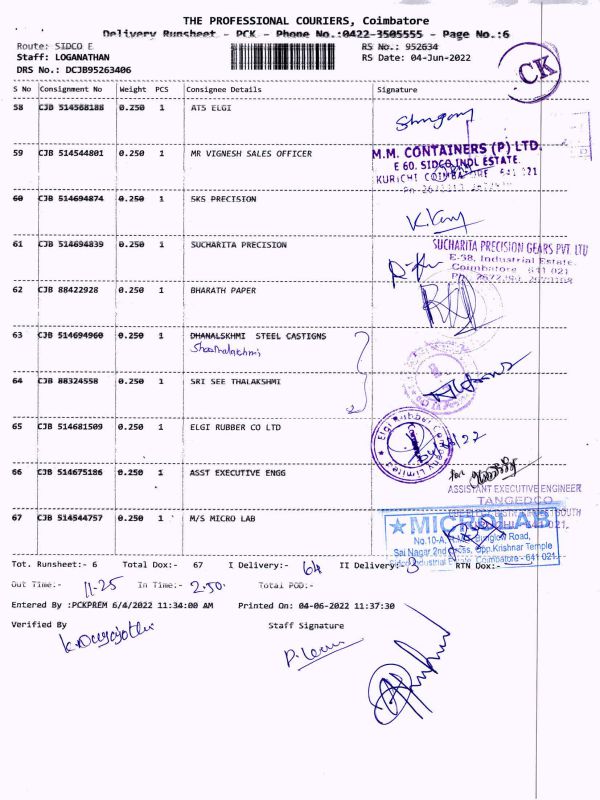 THE PROFESSIONAL COURIERS, Coimbatore
Delivery Runsheet - PCK - Phone No.:0422-3505555 - Page No.:6
Route: SIDCO E
RS No.: 952634
Staff: LOGANATHAN
RS Date: 04-Jun-2022
DRS No.: DCJB95263406
CK
S No Consignment No Weight PCS Consignee Details Signature
58 CJB 514568188 0.250 1 ATS ELGI
59 CJB 514544801 0.250 1 MR VIGNESH SALES OFFICER
M.M. CONTAINERS (P) LTD.
E 60. SIDCO INDL ESTATE.
KURICHI COIMBATORE 641 021
60 CJB 514694874 0.250 1 SKS PRECISION
61 CJB 514694839 0.250 1 SUCHARITA PRECISION
SUCHARITA PRECISION GEARS PVT. LTD
E-38, Industrial Estate.
Coimbatore 641 021
62 CJB 88422928 0.250 1 BHARATH PAPER
63 CJB 514694960 0.250 1 DHANALSKHMI STEEL CASTIGNS
64 CJB 88324558 0.250 1 SRI SEE THALAKSHMI
65 CJB 514681509 0.250 1 ELGI RUBBER CO LTD
Elgi Rubber Company Limited
66 CJB 514675186 0.250 1 ASST EXECUTIVE ENGG
for
ASSISTANT EXECUTIVE ENGINEER
TANGEDCO
67 CJB 514544757 0.250 1 M/S MICRO LAB
MICROLAB
Sai Nagar 2nd Cross, Opp.Krishnar Temple
Sidco Industrial Estate, Coimbatore - 641 021.
Tot. Runsheet:- 6 Total Dox:- 67 I Delivery:- 64 II Delivery:- 3 RTN Dox:-
Out Time:- 11-25 In Time:- 2-50 Total POD:-
Entered By :PCKPREM 6/4/2022 11:34:00 AM Printed On: 04-06-2022 11:37:30
Verified By Staff Signature